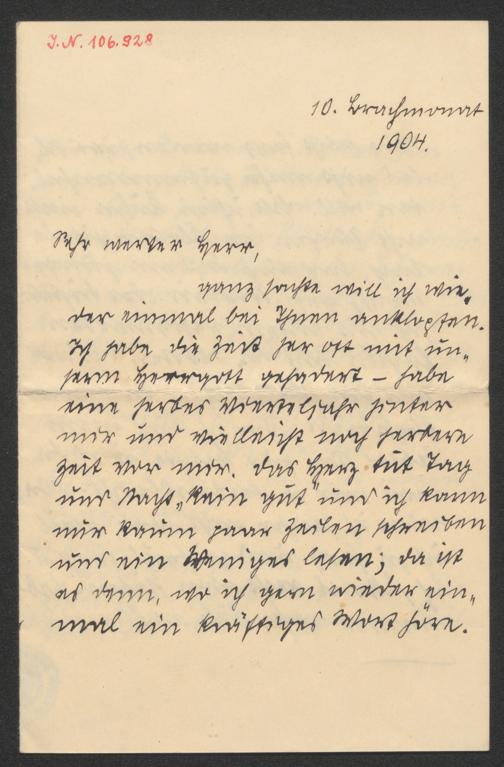 J.N. 106.928
10. Brachmonat
1904.
Sehr werter Herr,
ganz sachte will ich wie-
der einmal bei Ihnen anklopfen.
Ich habe die Zeit her oft mit un-
serm Herrgott gehadert – habe
eine herbes Vierteljahr hinter
mir und vielleicht noch herbere
Zeit vor mir. Das Herz tut Tag
und Nacht „kain gut" und ich kann
mir kaum paar Zeilen schreiben
und ein Weniges lesen; da ist
es denn, wo ich gern wieder ein-
mal ein kräftiges Wort höre.